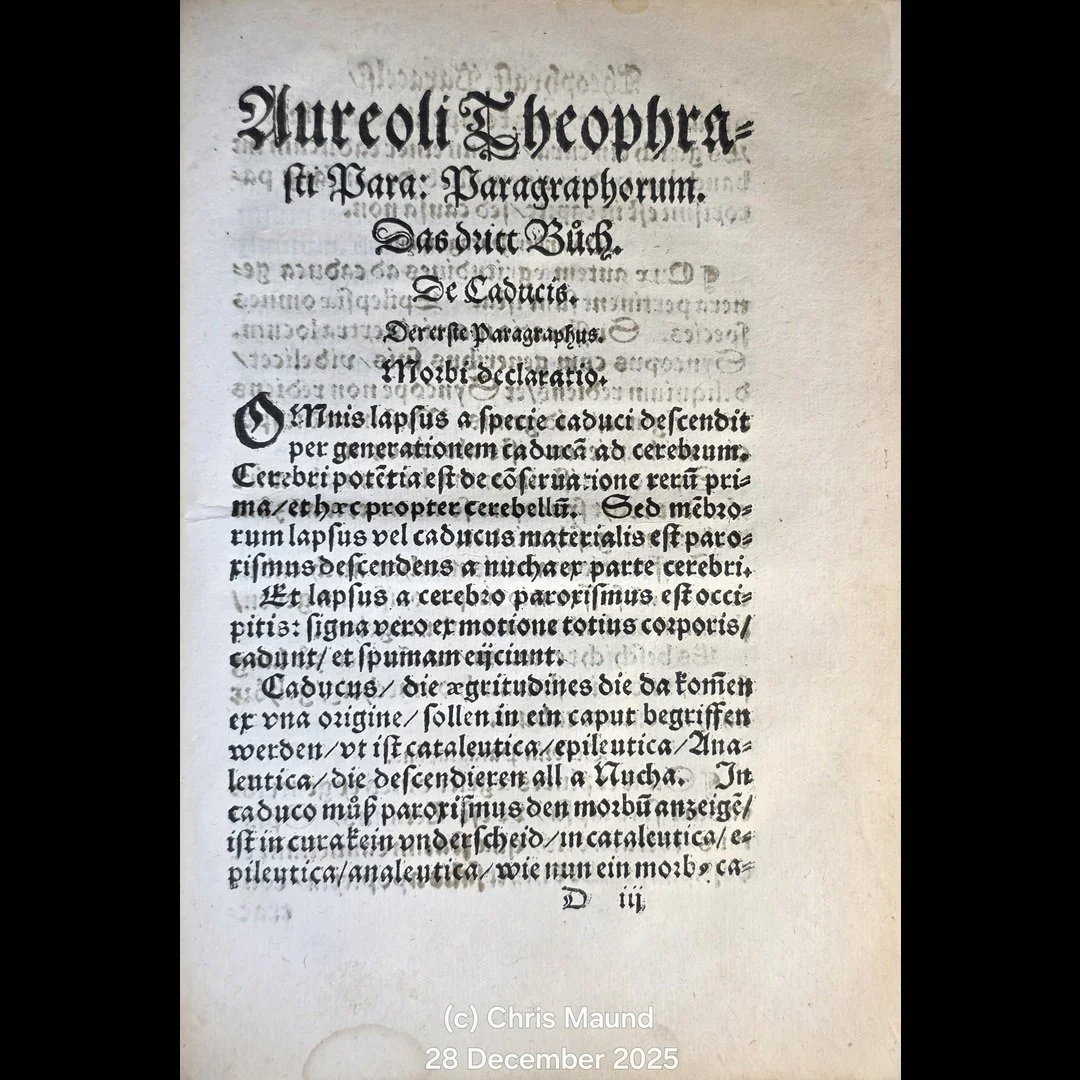 Aureoli Theophra⸗
sti Para: Paragraphorum.
Das dritt Bůch.
De Caducis.
Der erste Paragraphus.
Morbi declaratio.
OMnis lapsus a specie caduci descendit
per generationem caducā ad cerebrum.
Cerebri potētia est de cōseruatione rerū pri⸗
ma/et hæc propter cerebellū. Sed mēbro⸗
rum lapsus vel caducus materialis est paro⸗
xismus descendens a nucha ex parte cerebri.
Et lapsus a cerebro paroxismus est occi⸗
pitis: signa vero ex motione totius corporis/
cadunt/ et spumam eijciunt.
Caducus/ die ægritudines die da kom̄en
ex vna origine/ sollen in ein caput begriffen
werden/vt ist cataleutica/epileutica/Ana⸗
leutica/die descendieren all a Nucha. In
caduco můß paroxismus den morbū anzeigē/
ist in cura kein vnderscheid/in cataleutica/e⸗
pileutica/analeutica/wie nun ein morbꝰ ca⸗
D iij
(c) Chris Maund
28 December 2025